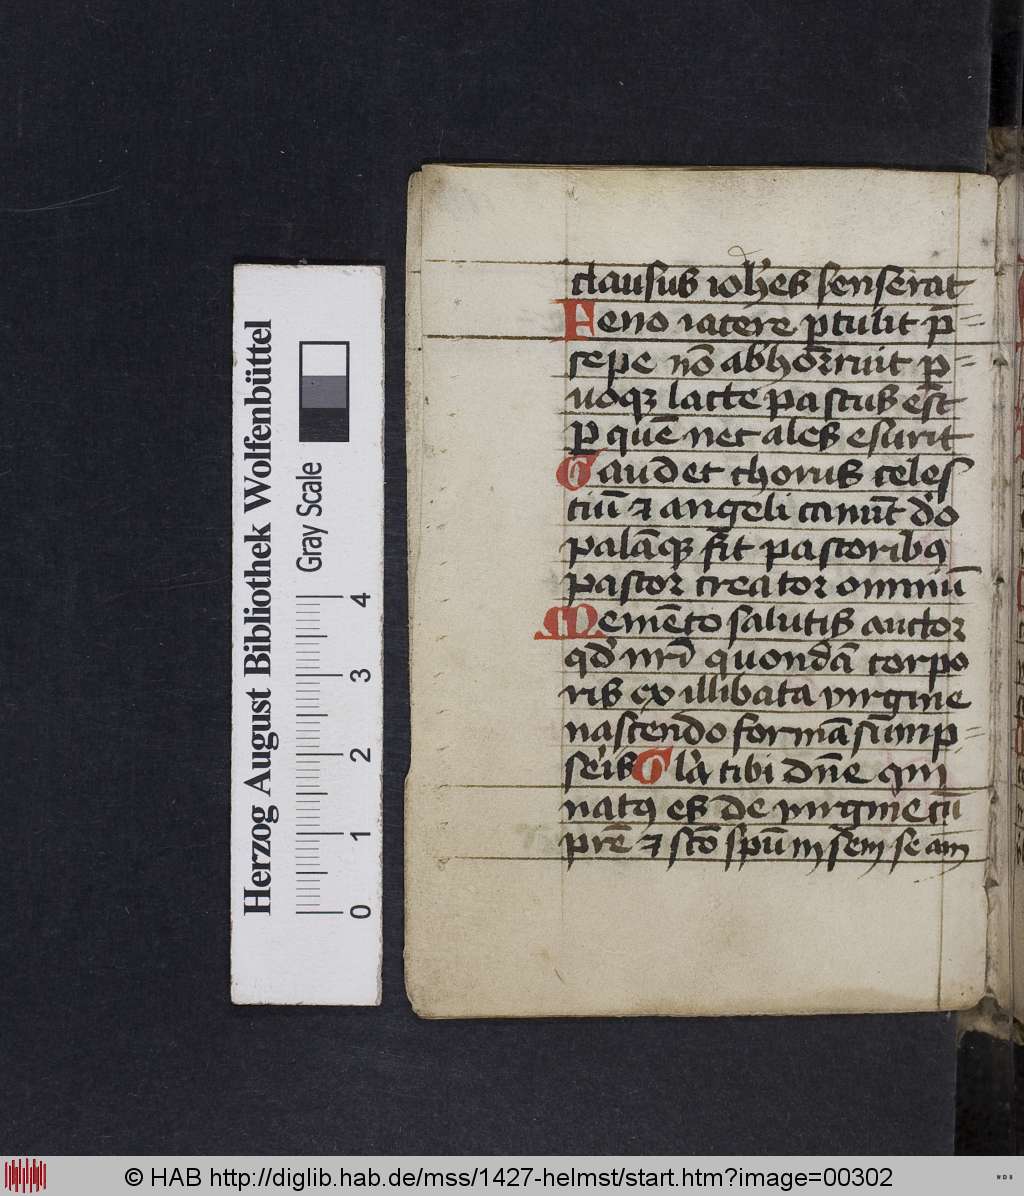 clausus ioh̅es senserat
Feno iacere p̲tulit p̅=
sepe no̅ abhorruit p̲=
uoq̲ lacte pastus est
P̲ que̅ nec ales esurit
Gaudet chorus celes
tiu̅ ⁊ angeli canu̅t d̅o
pala̅q̲ fit pastoribꝰ
pastor creator omniu̅
Meme̅to salutis auctor
qd̅ nr̅i quonda̅ corpo
ris ex illibata virgine
nascendo forma̅ sump=
seris Gl̅a tibi dn̅e qui
natꝰ es de virgine cu̅
pr̅e ⁊ sc̅o sp̅u in sem se am
Herzog August Bibliothek Wolfenbüttel
Gray Scale
0 1 2 3 4
© HAB http://diglib.hab.de/mss/1427-helmst/start.htm?image=00302